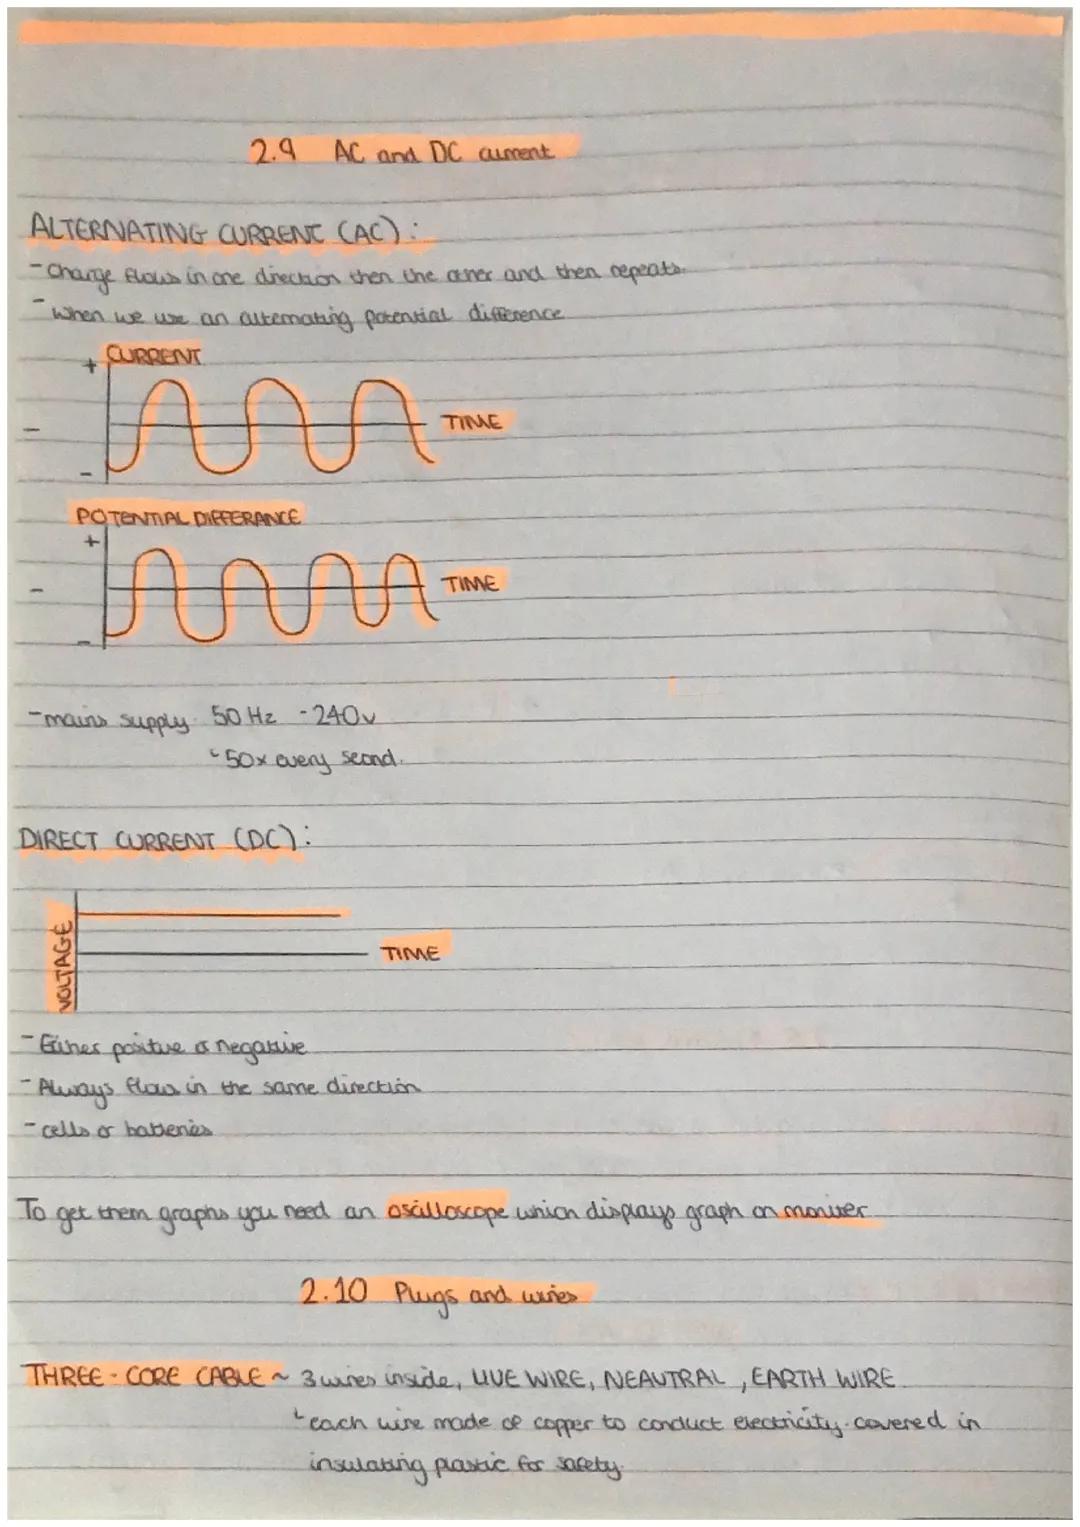 2.9 AC and DC current
ALTERNATING CURRENT (AC):
- Charge flows in one direction then the other and then repeats.
- When we use an alternating potential difference
+ CURRENT
TIME
-
POTENTIAL DIFFERANCE
+
TIME
-
- mains supply 50 Hz - 240v
50x every second.
DIRECT CURRENT (DC):
VOLTAGE
TIME
- Either positive or negative
- Always flow in the same direction
- cells or batteries
To get them graphs you need an oscilloscope which displays graph on moniter
2.10 Plugs and wires
THREE-CORE CABLE ~ 3 wires inside, LIVE WIRE, NEAUTRAL, EARTH WIRE
each wire made of copper to conduct electricity. covered in
insulating plastic for safety.